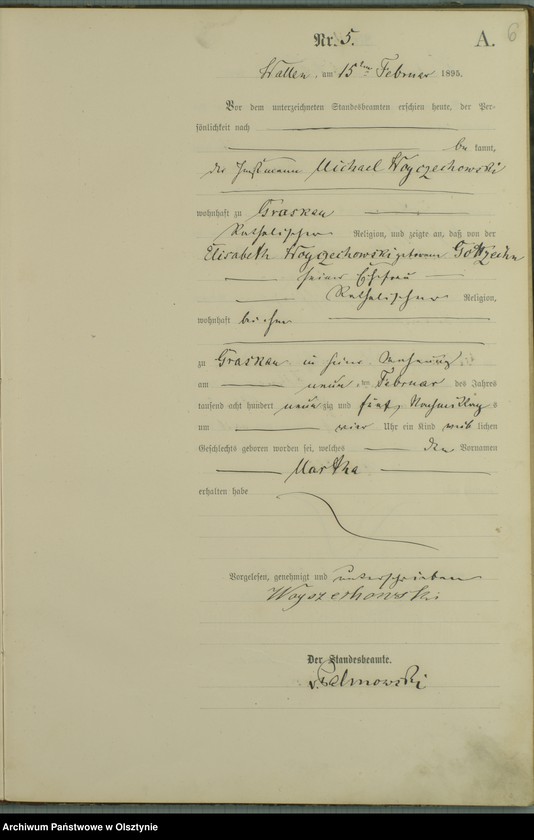 6
Nr. 5. A.
Wallen, am 15ten Februar 1895.
Vor dem unterzeichneten Standesbeamten erschien heute, der Per-
sönlichkeit nach
be kannt,
der Instmann Michael Woyczechowski
wohnhaft zu Grasken
katholischer Religion, und zeigte an, daß von der
Elisabeth Woyczechowski geborenen
seiner Ehefrau
katholischer Religion,
wohnhaft bei ihm
zu Grasken in seiner Wohnung
am neun ten Februar des Jahres
tausend acht hundert neun zig und fünf Nachmittag s
um vier Uhr ein Kind weib lichen
Geschlechts geboren worden sei, welches den Vornamen
Martha
erhalten habe
Vorgelesen, genehmigt und unterschrieben
Woyszechowski
Der Standesbeamte.
Archiwum Państwowe w Olsztynie